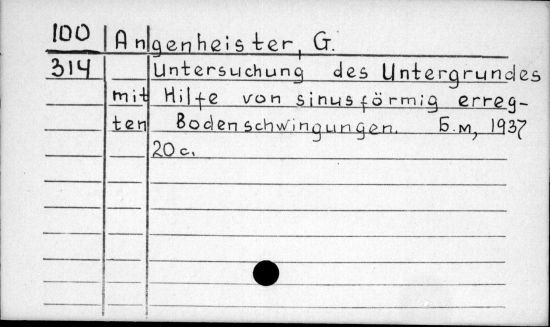 100 Angenheister, G.
314 Untersuchung des Untergrundes
mit Hilfe von sinusförmig erreg-
ten Bodenschwingungen. Б.м, 1937
20 с.